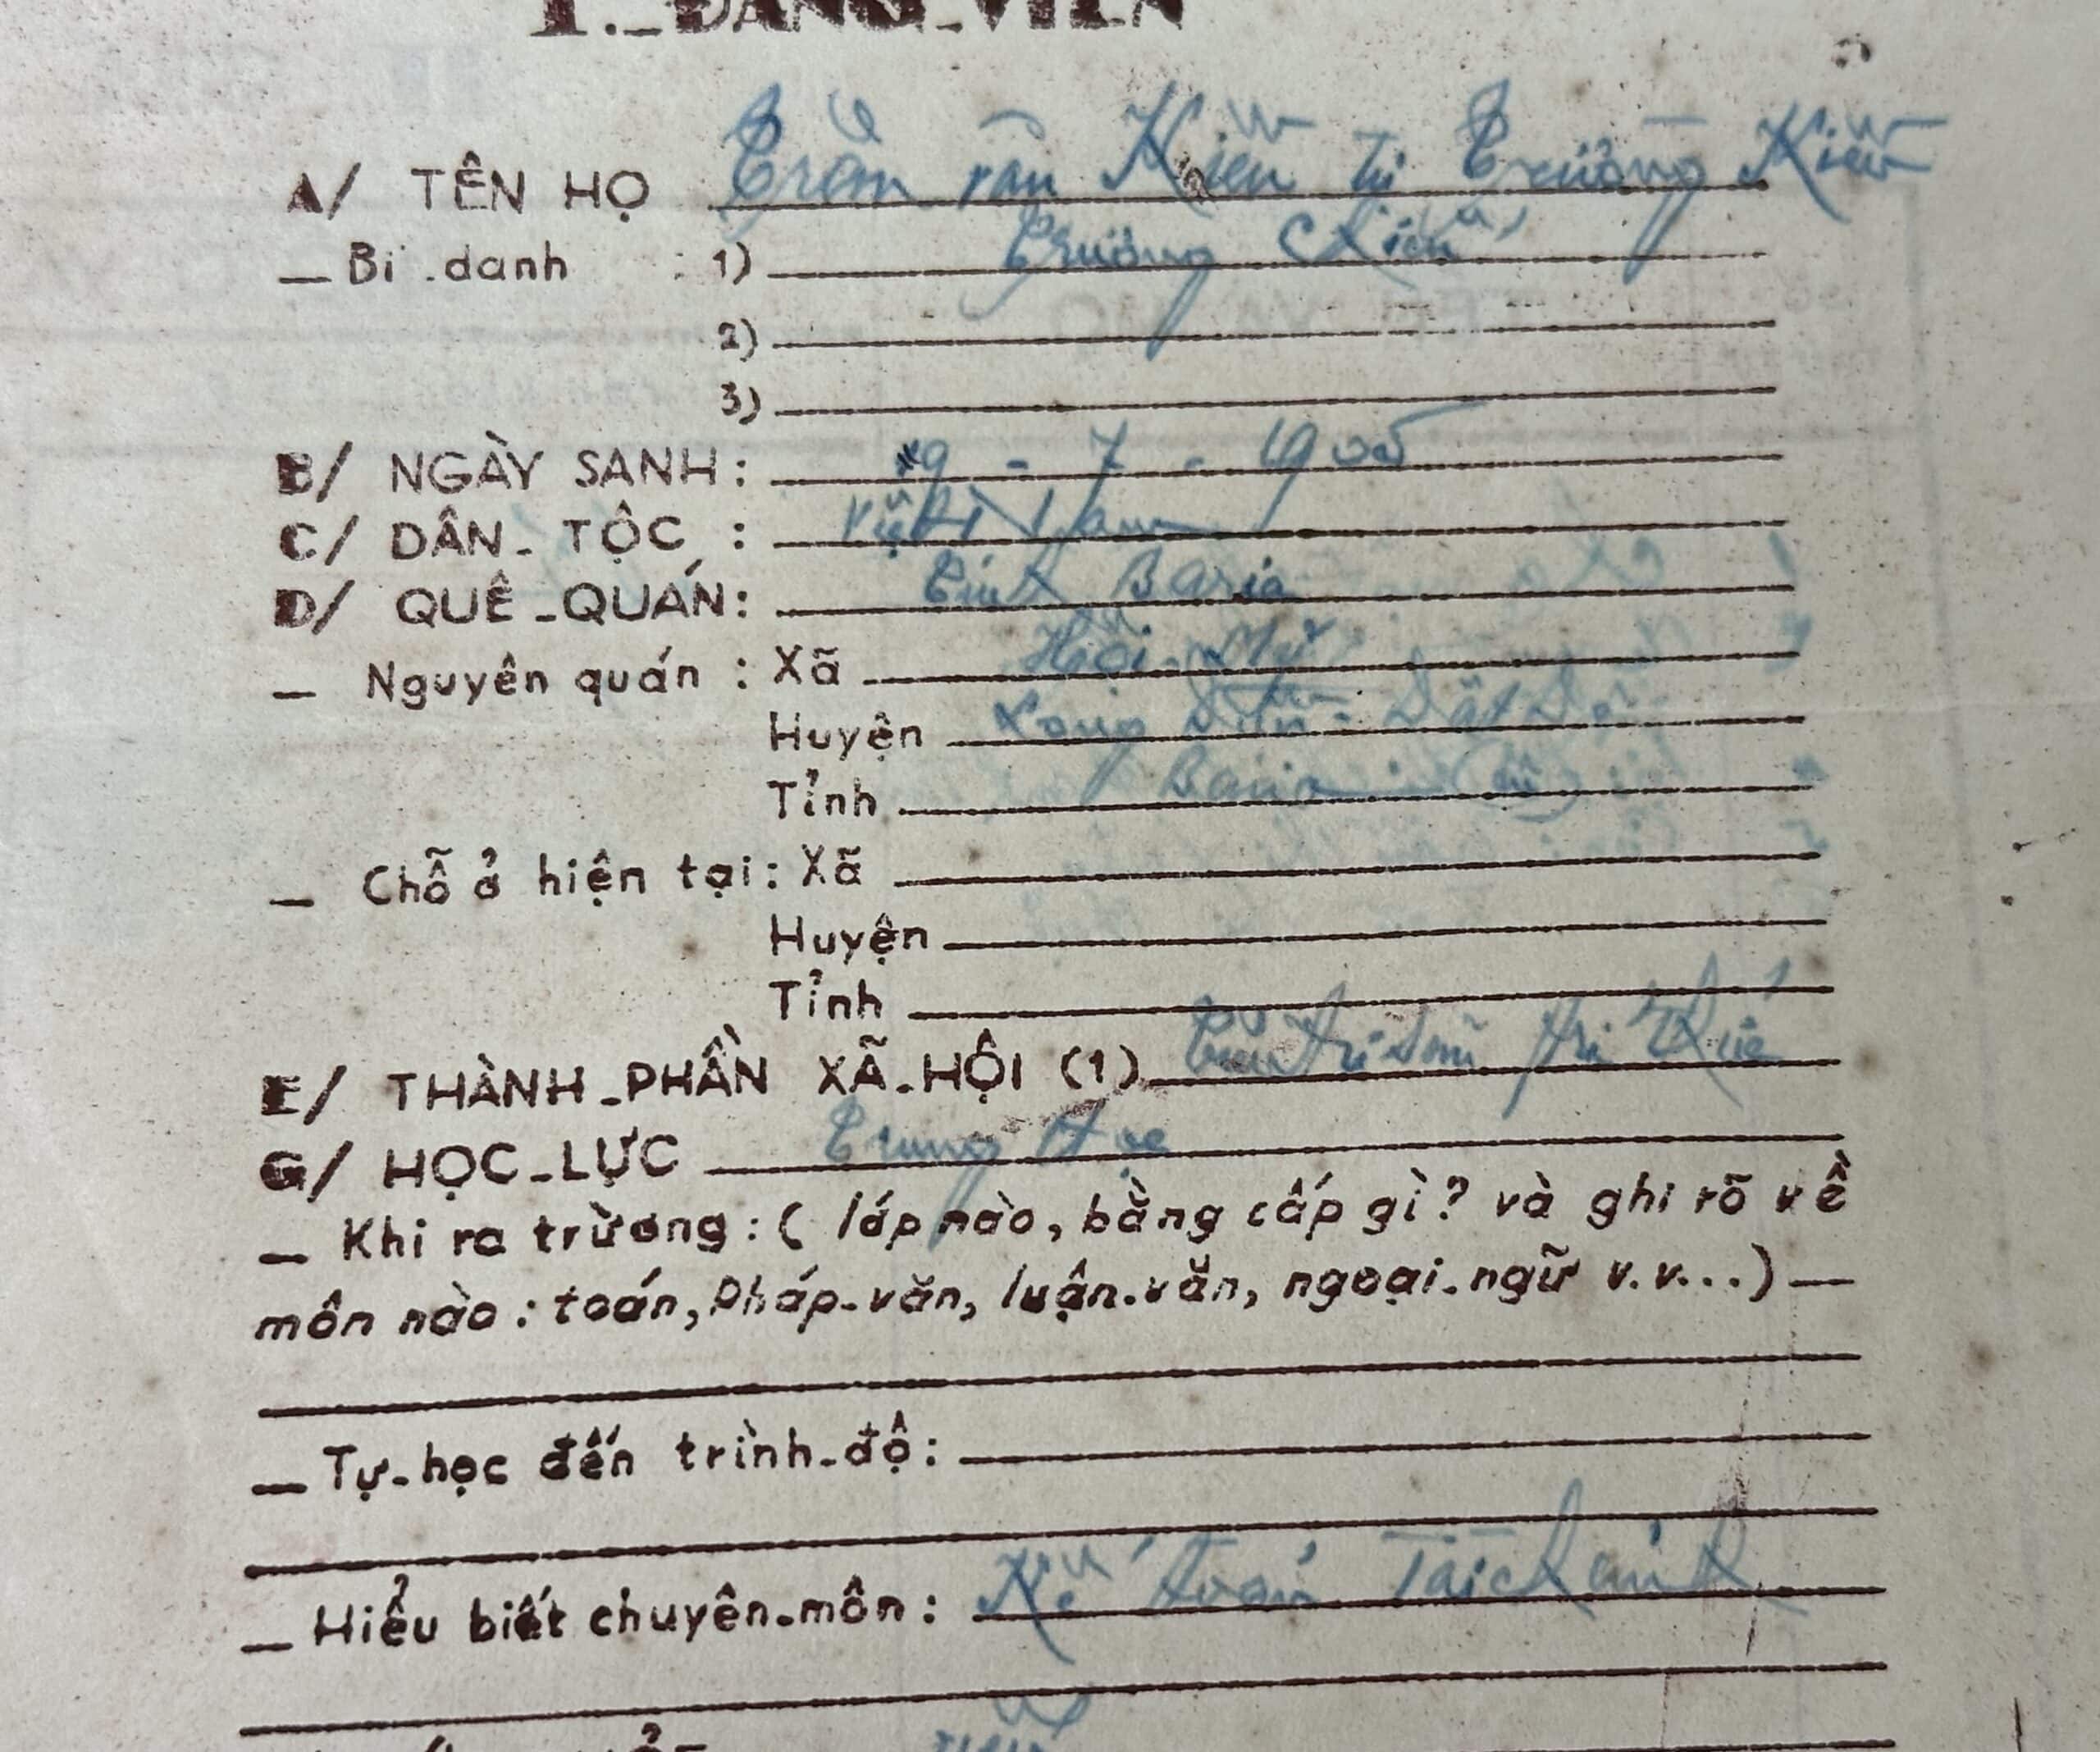 I._ĐẢNG_VIÊN
A/ TÊN HỌ Trần văn Kiến Tự Trường Kiến
— Bí.danh : 1) Trường
2)
3)
B/ NGÀY SANH: 9 - 7 - 1905
C/ DÂN_TỘC : Việt Nam
D/ QUÊ_QUÁN: Tỉnh Baria
— Nguyên quán : Xã Hội Mỹ
Huyện Long Điền - Đất Đỏ
Tỉnh Baria
— Chỗ ở hiện tại : Xã
Huyện
Tỉnh
E/ THÀNH_PHẦN XÃ_HỘI (1) Tiểu Tư sản Tri Thức
G/ HỌC_LỰC Trung Học
— Khi ra trường : ( lớp nào, bằng cấp gì ? và ghi rõ về
môn nào : toán, Pháp-văn, luận.văn, ngoại.ngữ v.v...) —
— Tự-học đến trình-độ :
— Hiểu biết chuyên-môn : Kế toán Tài chánh